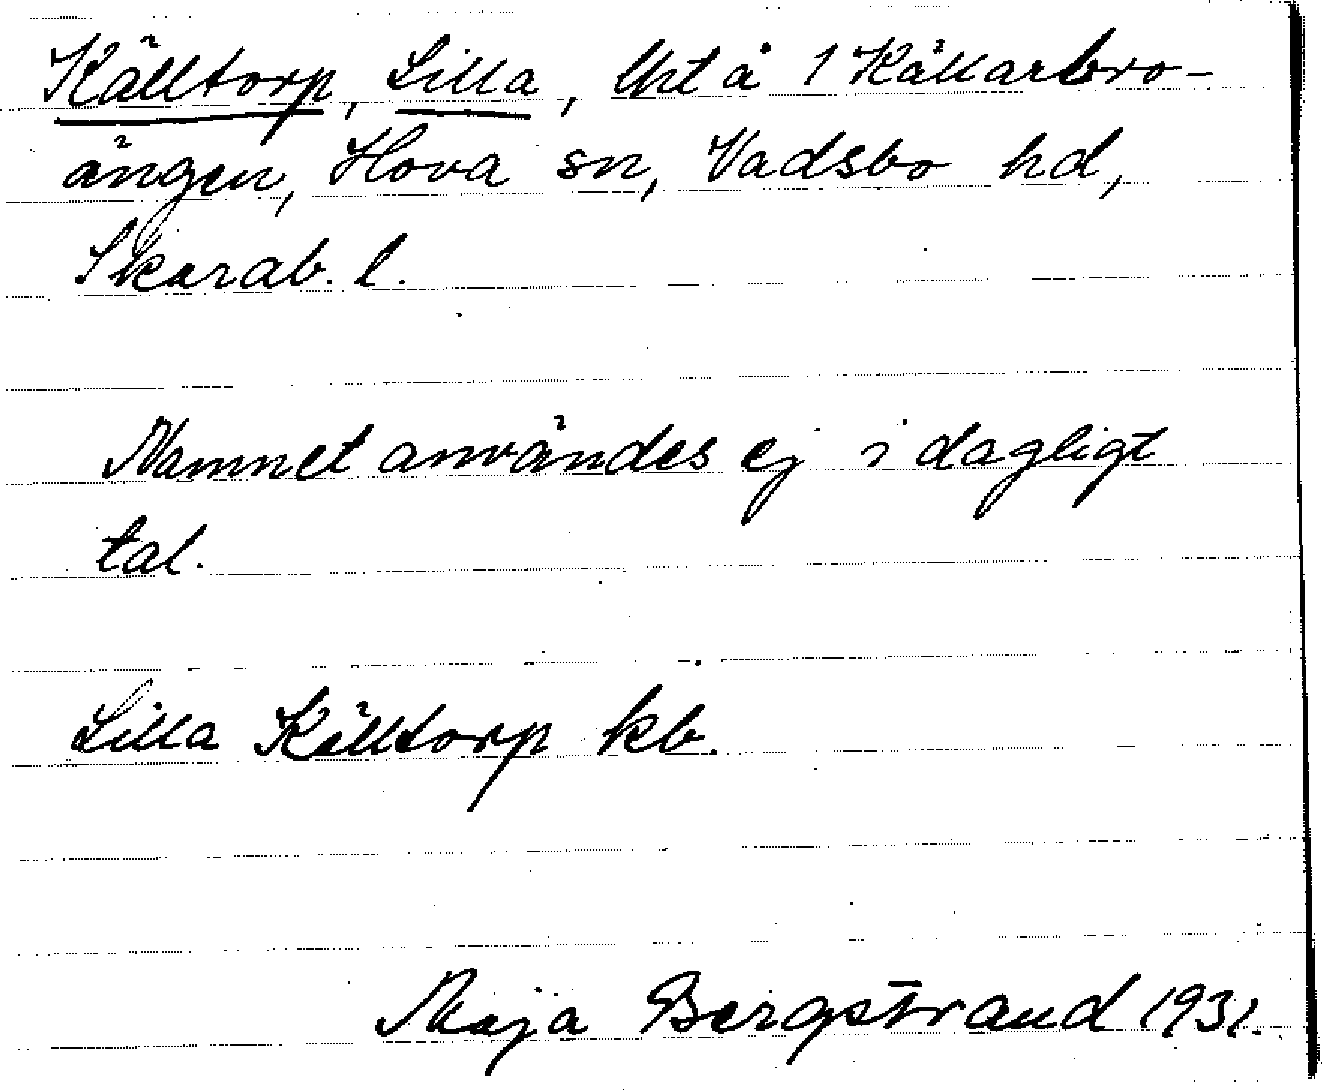 Källtorp, Lilla, lht å 1 Källarbro-
ängen, Hova sn, Vadsbo hd,
Skarab. l.
Namnet användes ej i dagligt
tal.
Lilla Källtorp kb.
Maja Bergstrand 1931.